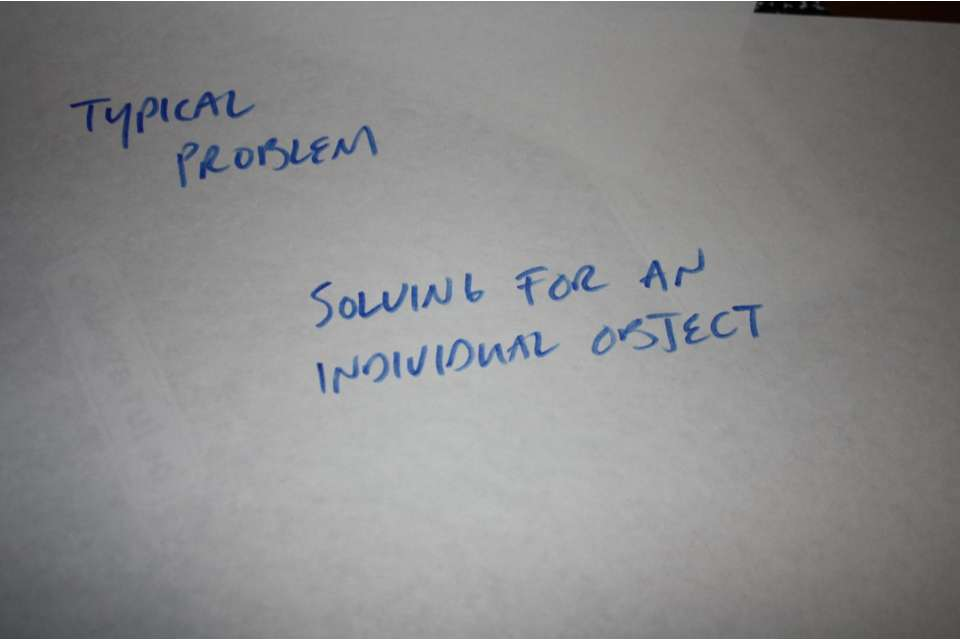 TYPICAL
PROBLEM
SOLVING FOR AN
INDIVIDUAL OBJECT